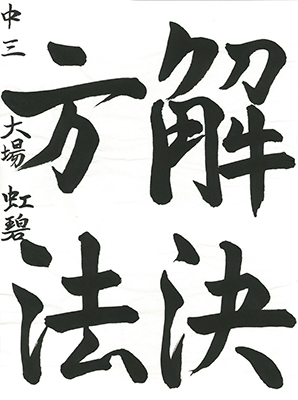 解決
方法
中三 大場 虹碧